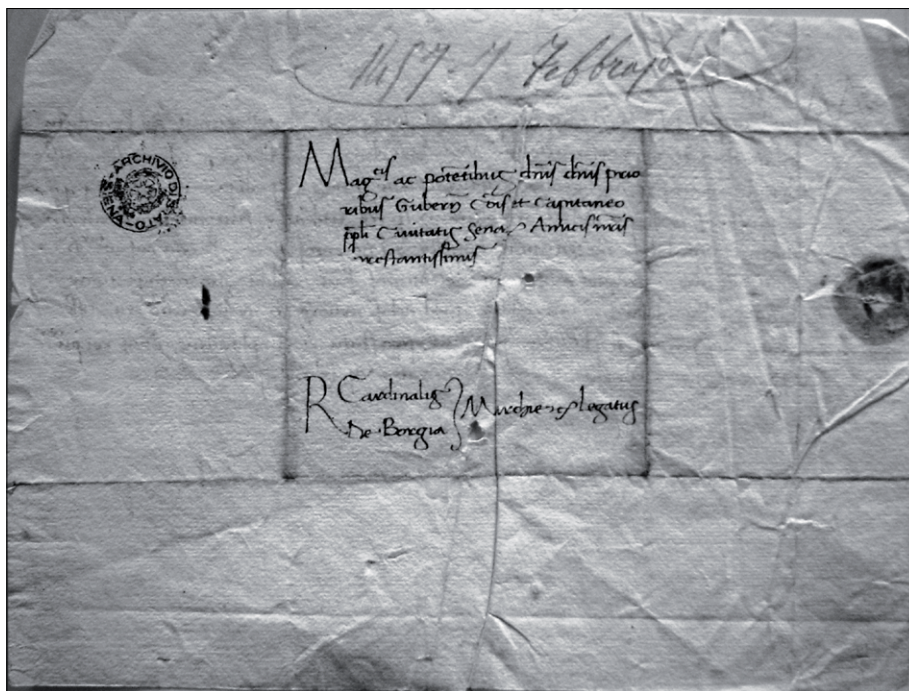 1457 7 Febbrajo
ARCHIVIO DI STATO SIENA
Mag.cis ac potẽtibus dñis dñis prio
ribus Gubern̄ Cōis et Capitaneo
ppli Civitatis Senar Amicis nr̃is
prestantissimis
R Cardinalis
de Borgia
Marchie legatus